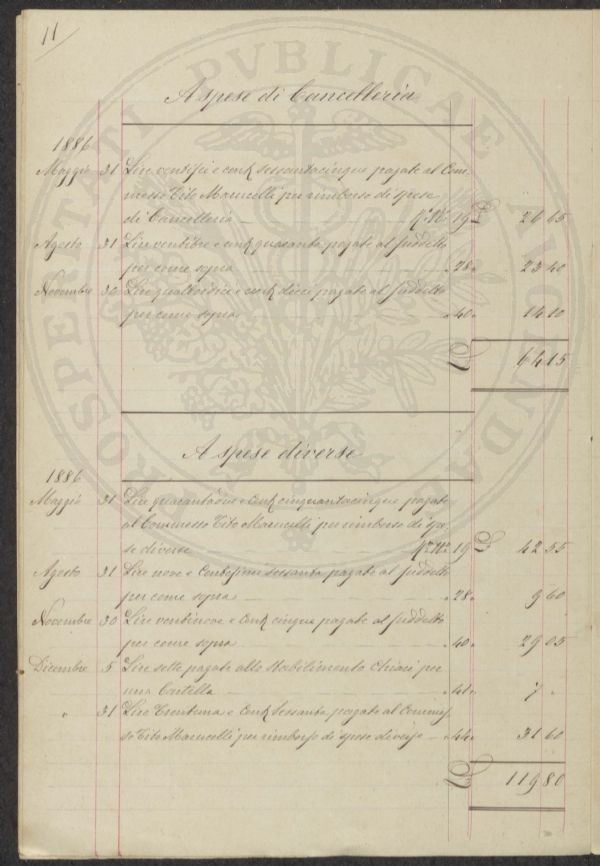 11
A spese di Cancelleria
1886
Maggio 31 Lire ventisei e centi sessantacinque pagate al Com-
messo Tito Marucelli per rimborso di spese
di Cancelleria 19 £ 26 65
Agosto 31 Lire ventitre e centi quaranta pagate al suddetto
per come sopra " 28 " 23 40
Novembre 30 Lire quattordici e centi dieci pagate al suddetto
per come sopra " 40 " 14 10
£ 64 15
A spese diverse
1886
Maggio 31 Lire quarantadue e centi cinquantacinque pagate
al Commesso Tito Marucelli per rimborso di spe-
se diverse 19 £ 42 55
Agosto 31 Lire nove e Centesimi sessanta pagate al suddetto
per come sopra " 28 " 9 60
Novembre 30 Lire ventinove e centi cinque pagate al suddetto
per come sopra " 40 " 29 05
Dicembre 5 Lire sette pagate allo Stabilimento Chiari per
una Cartella " 41 " 7 "
" 31 Lire Trentuna e centi Sessanta pagate al Commes-
so Tito Marucelli per rimborso di spese diverse " 44 " 31 60
£ 119 80
PROSPERITATI PVBLICAE AVGENDAE